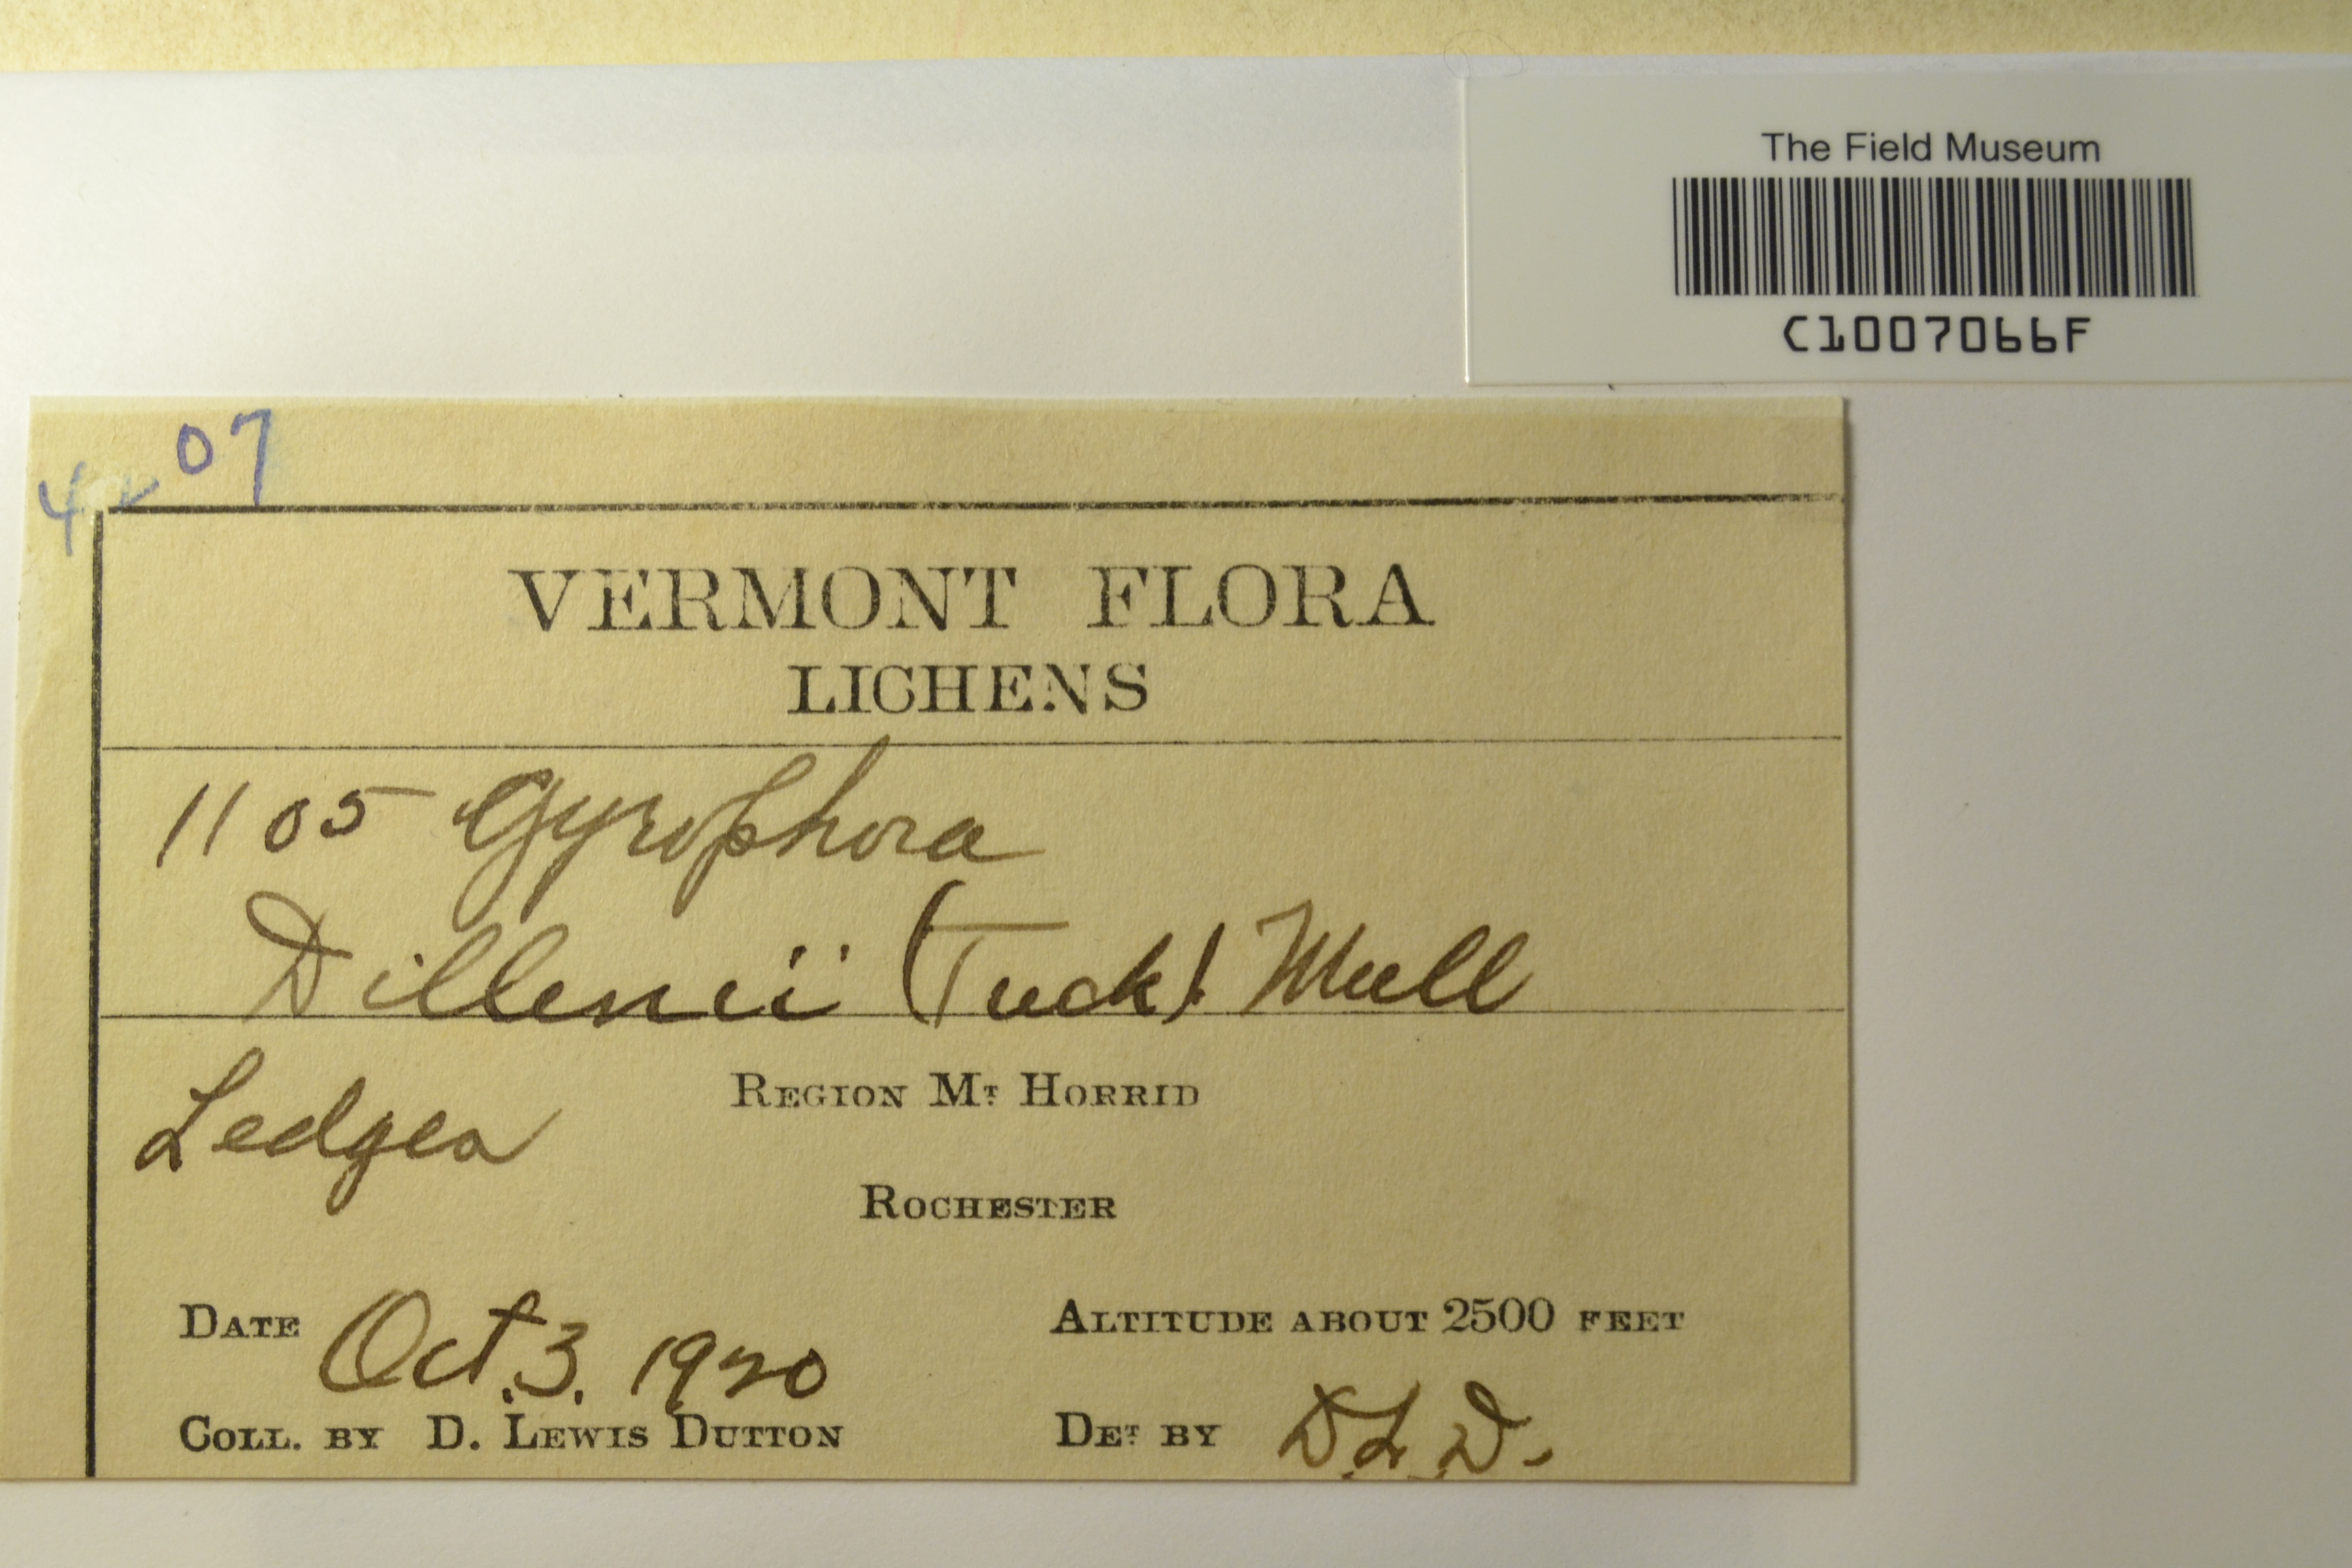 The Field Museum
C1007066F
07
VERMONT FLORA
LICHENS
1105 Gyrophora
Dillenii (Tuck). Mull
REGION MT HORRID
Ledges
ROCHESTER
DATE Oct. 3. 1920
ALTITUDE ABOUT 2500 FEET
COLL. BY D. LEWIS DUTTON
DET BY D. L. D.